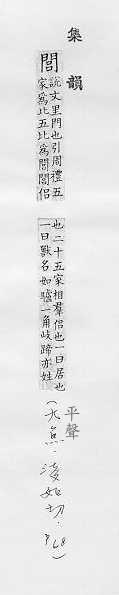 集韻
閭
說文里門也引周禮五
家爲比五比爲閭閭侶
也二十五家相羣侶也一曰居也
一曰獸名如驢一角岐蹄亦姓
平聲
凌如切